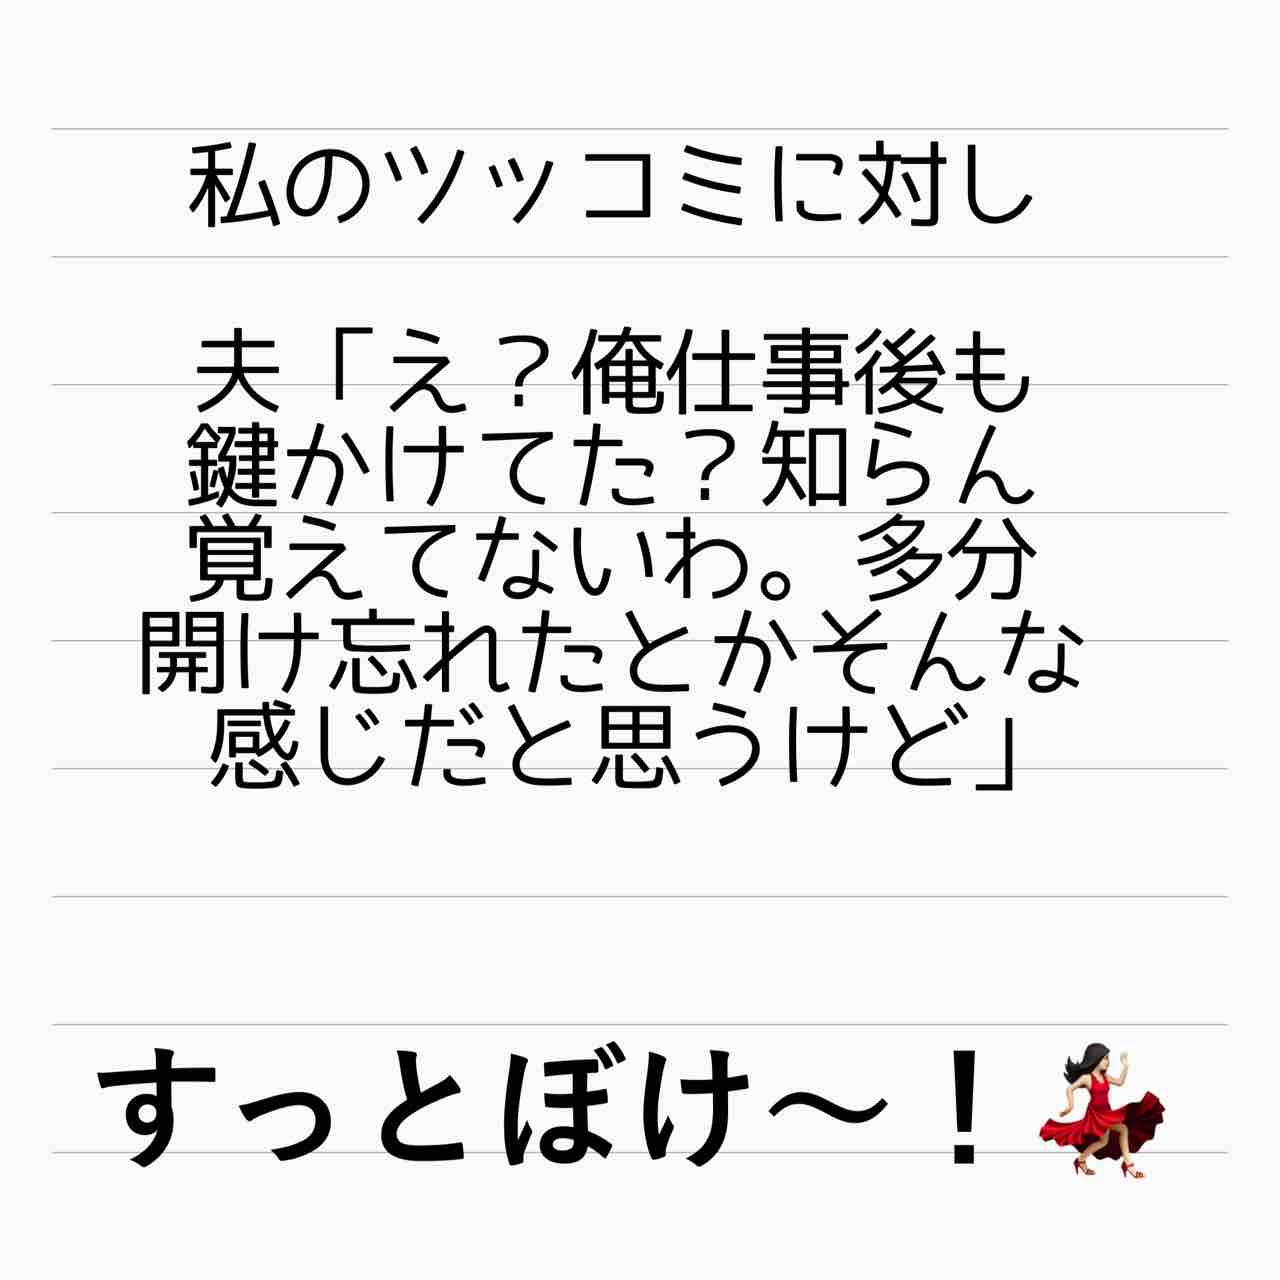 私のツッコミに対し
夫「え？俺仕事後も
鍵かけてた？知らん
覚えてないわ。多分
開け忘れたとかそんな
感じだと思うけど」
すっとぼけ〜！💃